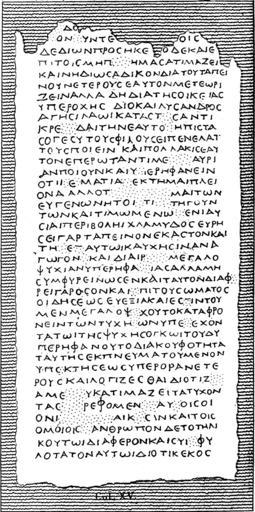 ΟΝ ΥΝΤΕ ΟΙΣ
ΔΕΔΙΩΝΠΡΟϹΗΚΕ ΟΔΕΚΑΙΕ
ΠΙΤΟΙϹΜΗΠ ΗΜΑϹΑΤΙΜΑΖΕΙ
ΚΑΙΝΗΔΙΩϹΑΔΙΚΟΝΔΙΑΤΟΥΤΑΠΕΙ
ΝΟΥΝΕΤΕΡΟΥϹΕΑΥΤΟΝΜΕΤΕΩΡΙ
ΖΕΙΝΑΛΛΑΔΗΔΙΑΤΗϹΟΙΚΕΙΑϹ
ΥΠΕΡΟΧΗϹ ΔΙΟΚΑΙΛΥϹΑΝΔΡΟϹ
ΑΓΗϹΙΛΑΩΙΚΑΤΑϹΤ ϹΑΝΤΙ
ΚΡΕ ΔΑΙΤΗΝΕΑΥΤΟ ΗΠΙϹΤΑ
ϹΟΓΕϹΥΤΟΥϹΦΙΛΟΥϹΕΙΠΕΝΕΛΑΤ
ΤΟΥϹΠΟΙΕΙΝ ΚΑΙΠΟΛΛΑΚΙϹΕΑΥ
ΤΟΝΕΠΕΡΩΤΑΝΤΙΜΕ ΑΥΡΙ
ΑΝΠΟΙΟΥΝΚΑΙΥ ΕΡΗΦΑΝΕΙΝ
ΟΤΙΙ ΕΜΑΤΙΑ ΕΚΤΗΜΑΙΠΛΕΙ
ΟΝΑ ΑΛΛΟΤ ΜΑΙΤΩΝ
ΕΥΓΕΝΩΝΗΤΟΙ ΤΙ ΤΗΓΟΥΝ
ΤΩΝΚΑΙΤΙΜΩΜΕΝΩ ΕΝΙΑΥ
ϹΙΑΙΠΕΡΙΒΟΛΗΙΧΛΑΜΥΔΟϹΕΥΡΗ
ϹΕΙΓΑΡΤΑΠΕΙΝΟΝΕΚΑϹΤΟΝΚΑΙ
ΤΗ ΕΞΑΥΤΩΙΚΑΥΧΗϹΙΝΑΝΑ
ΓΩΓΟΝ ΚΑΙΔΙΑΙΡ ΜΕΓΑΛΟ
ΨΥΧΙΑΝΥΠΕΡΗΦΑ ΙΑϹΑΛΛΑΜΗ
ϹΥΜΦΥΡΕΙΝΩϹΕΝΚΑΙΤΑΥΤΟΝΔΙΑΦ
ΡΕΙΓΑΡΟϹΟΝΚΑΙ ΠΙΤΟΥϹΩΜΑΤΟϹ
ΟΙΔΗϹΕΩϹΕΥΕΞΙΑΚΑΙΕϹΤΙΝΤΟΥ
ΜΕΝΜΕΓΑΛΟΨ ΧΟΥΤΟΚΑΤΑΦΡΟ
ΝΕΙΝΤΩΝΤΥΧΗ ΩΝΥΠΕ ΕΧΟΝ
ΤΑΤΩΙΤΗϹΨΥΧΗϹΟΓΚΩΙΤΟΥΔΥ
ΠΕΡΗΦΑΝΟΥΤΟΔΙΑΚΟΥΦΟΤΗΤΑ
ΤΑΥΤΗϹΕΚΠΝΕΥΜΑΤΟΥΜΕΝΟΝ
ΥΠ ΚΤΗϹΕΩϹΥΠΕΡΟΡΑΝΕΤΕ
ΡΟΥϹΚΑΙΛΟΓΙΖΕϹΘΑΙΔΙΟΤΙΖ
ΑΜΕ ΥΚΑΤΙΜΑΖΕΙΤΑΤΥΧΟΝ
ΤΑϹ ΡΕΦΟΜΕΝ ΑΥΟΙϹΟΙ
ΟΝΙ ΑΙΚ ϹΙΝΚΑΙΤΟΙϹ
ΟΜΟΙΟΙϹ ΑΝΘΡΩΠΟΝΔΕΤΟΤΗΝ
ΚΟΥΤΩΙΔΙΑΦΕΡΟΝΚΑΙϹΥΙ ΦΥ
ΛΟΤΑΤΟΝΑΥΤΩΙΔΙΟΤΙΚΕΚΟϹ
Col. XV.